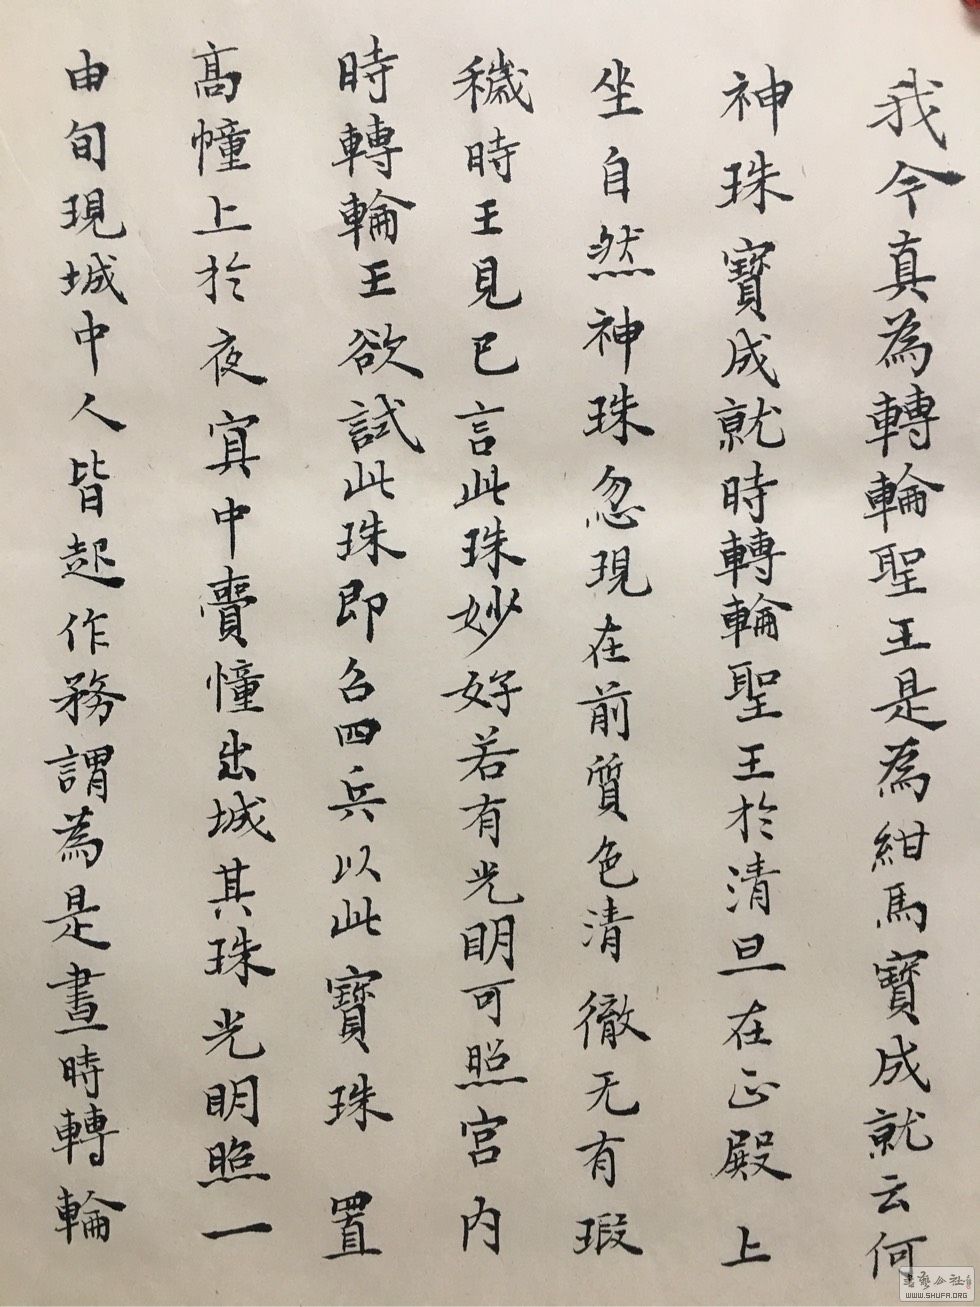 我今真為轉輪聖王是為紺馬寶成就云何
神珠寶成就時轉輪聖王於清旦在正殿上
坐自然神珠忽現在前質色清徹无有瑕
穢時王見已言此珠妙好若有光明可照宮内
時轉輪王欲試此珠即召四兵以此寶珠置
高幢上於夜冥中齎幢出城其珠光明照一
由旬現城中人皆起作務謂為是晝時轉輪
書藝公社
WWW.SHUFA.ORG